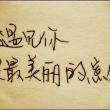 遇见你
最美丽的意